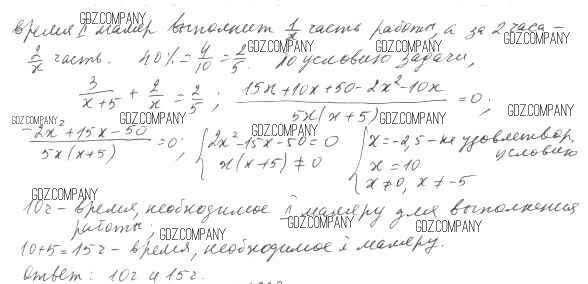 время II маляр выполнит 1/x часть работы, а за 2 часа –
2/x часть. 40% = 4/10 = 2/5. По условию задачи,
3/(x+5) + 2/x = 2/5; (15x+10x+50-2x²-10x)/(5x(x+5)) = 0;
(-2x²+15x-50)/(5x(x+5)) = 0; { 2x²-15x-50=0 x(x+5)≠0 { x=-2,5 – не удовлетвор. условию x=10 x≠0, x≠-5
10ч – время, необходимое II маляру для выполнения
работы;
10+5=15ч – время, необходимое I маляру.
Ответ: 10ч и 15ч.
GDZ.COMPANY
GDZ.COMPANY
GDZ.COMPANY
GDZ.COMPANY
GDZ.COMPANY
GDZ.COMPANY
GDZ.COMPANY
GDZ.COMPANY
GDZ.COMPANY
GDZ.COMPANY
GDZ.COMPANY
GDZ.COMPANY
GDZ.COMPANY